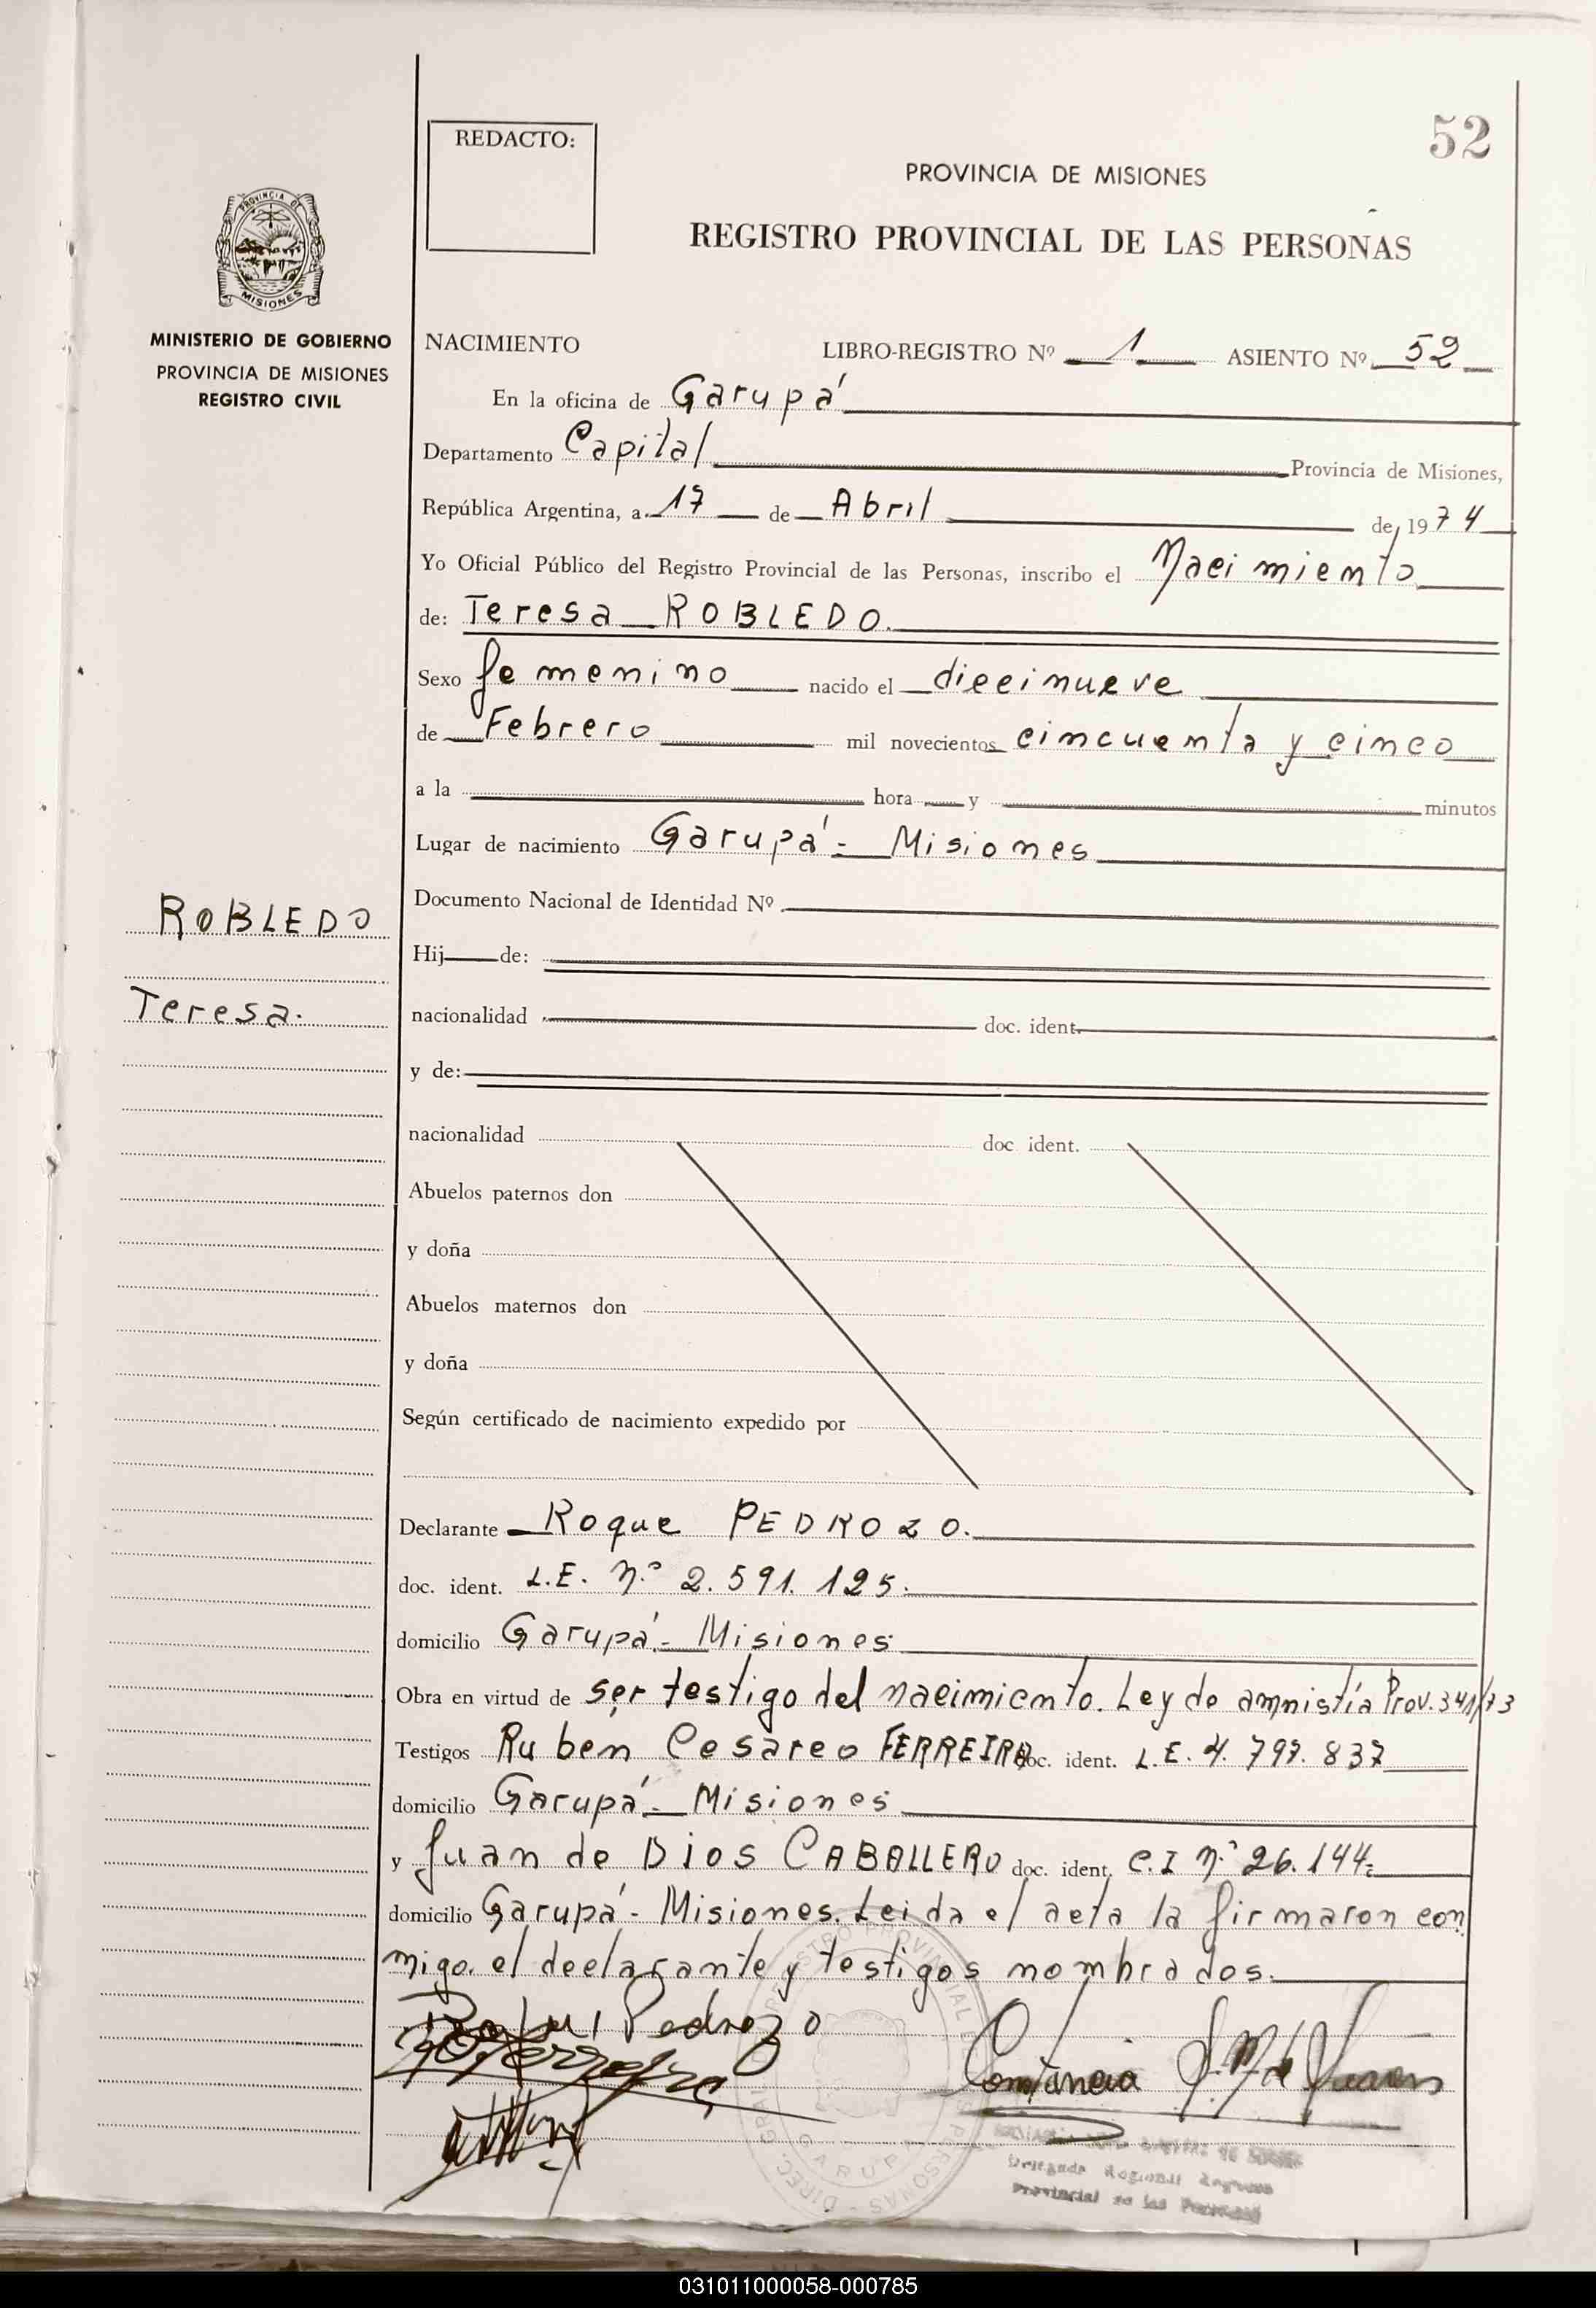 52
REDACTO:
PROVINCIA DE MISIONES
REGISTRO PROVINCIAL DE LAS PERSONAS
PROVINCIA DE
MISIONES
MINISTERIO DE GOBIERNO
PROVINCIA DE MISIONES
REGISTRO CIVIL
NACIMIENTO LIBRO-REGISTRO Nº 1 ASIENTO Nº 52
En la oficina de Garupá
Departamento Capital Provincia de Misiones,
República Argentina, a 17 de Abril de 1974
Yo Oficial Público del Registro Provincial de las Personas, inscribo el Nacimiento
de: Teresa ROBLEDO.
Sexo femenino nacido el diecinueve
de Febrero mil novecientos cincuenta y cinco
a la hora y minutos
Lugar de nacimiento Garupá - Misiones
Documento Nacional de Identidad Nº
ROBLEDO
Hij de:
Teresa.
nacionalidad doc. ident.
y de:
nacionalidad doc. ident.
Abuelos paternos don
y doña
Abuelos maternos don
y doña
Según certificado de nacimiento expedido por
Declarante Roque PEDROZO.
doc. ident. L.E. N.º 2.591.125.
domicilio Garupá - Misiones
Obra en virtud de ser testigo del nacimiento. Ley de amnistía Prov. 341/73
Testigos Ruben Cesareo FERREIRA doc. ident. L.E. 4.797.837
domicilio Garupá - Misiones
y Juan de Dios CABALLERO doc. ident. C.I N.º 26.144
domicilio Garupá - Misiones. Leida el acta la firmaron con
migo. el declarante y testigos nombrados.
Pedrozo
Delegada Regional Registro
Provincial de las Personas
GARUPA
031011000058-000785